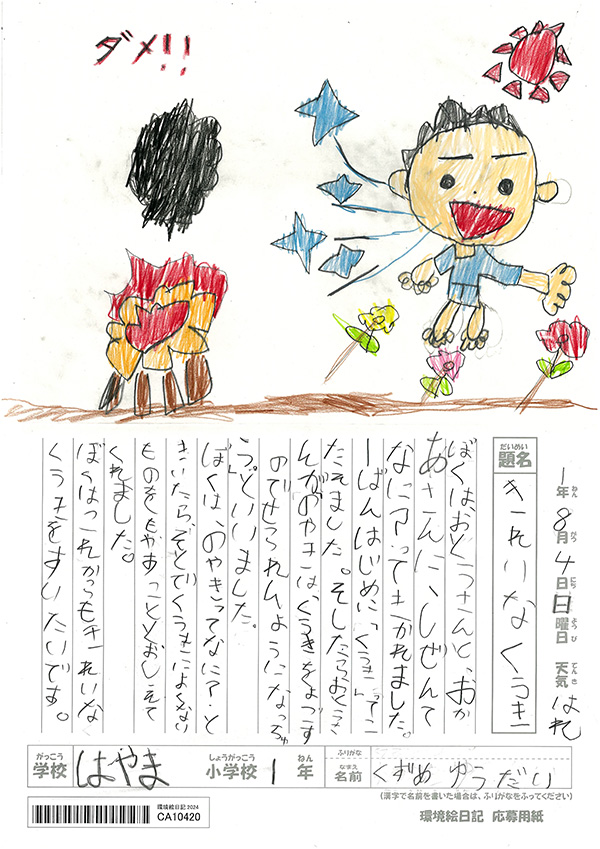 ダメ!!
1年8月4日日曜日 天気 はれ
題名 きれいなくうき
ぼくは、おとうさんと、おか
あさんに、しぜんて
なに?ってきかれました。
一ばんはじめに、「くうき」ってこ
たえました。そしたらおとうさ
んがのやきは、くうきをよごす
のでぜ
ようになっちゃ
う。」といいました。
ぼくは、のやきってなに?と
きいたら、そとでくうきによくない
ものをもやすことよとおしえて
くれました。
ぼくはこれからもきれいな
くうきをすいたいです。
がっこう しょうがっこう ねん なまえ ふりがな
学校 はやま 小学校 1 年 名前 くずめ ゆうだい
(漢字で名前を書いた場合は、ふりがなをふってください)
環境絵日記 2024
CA10420
環境絵日記 応募用紙